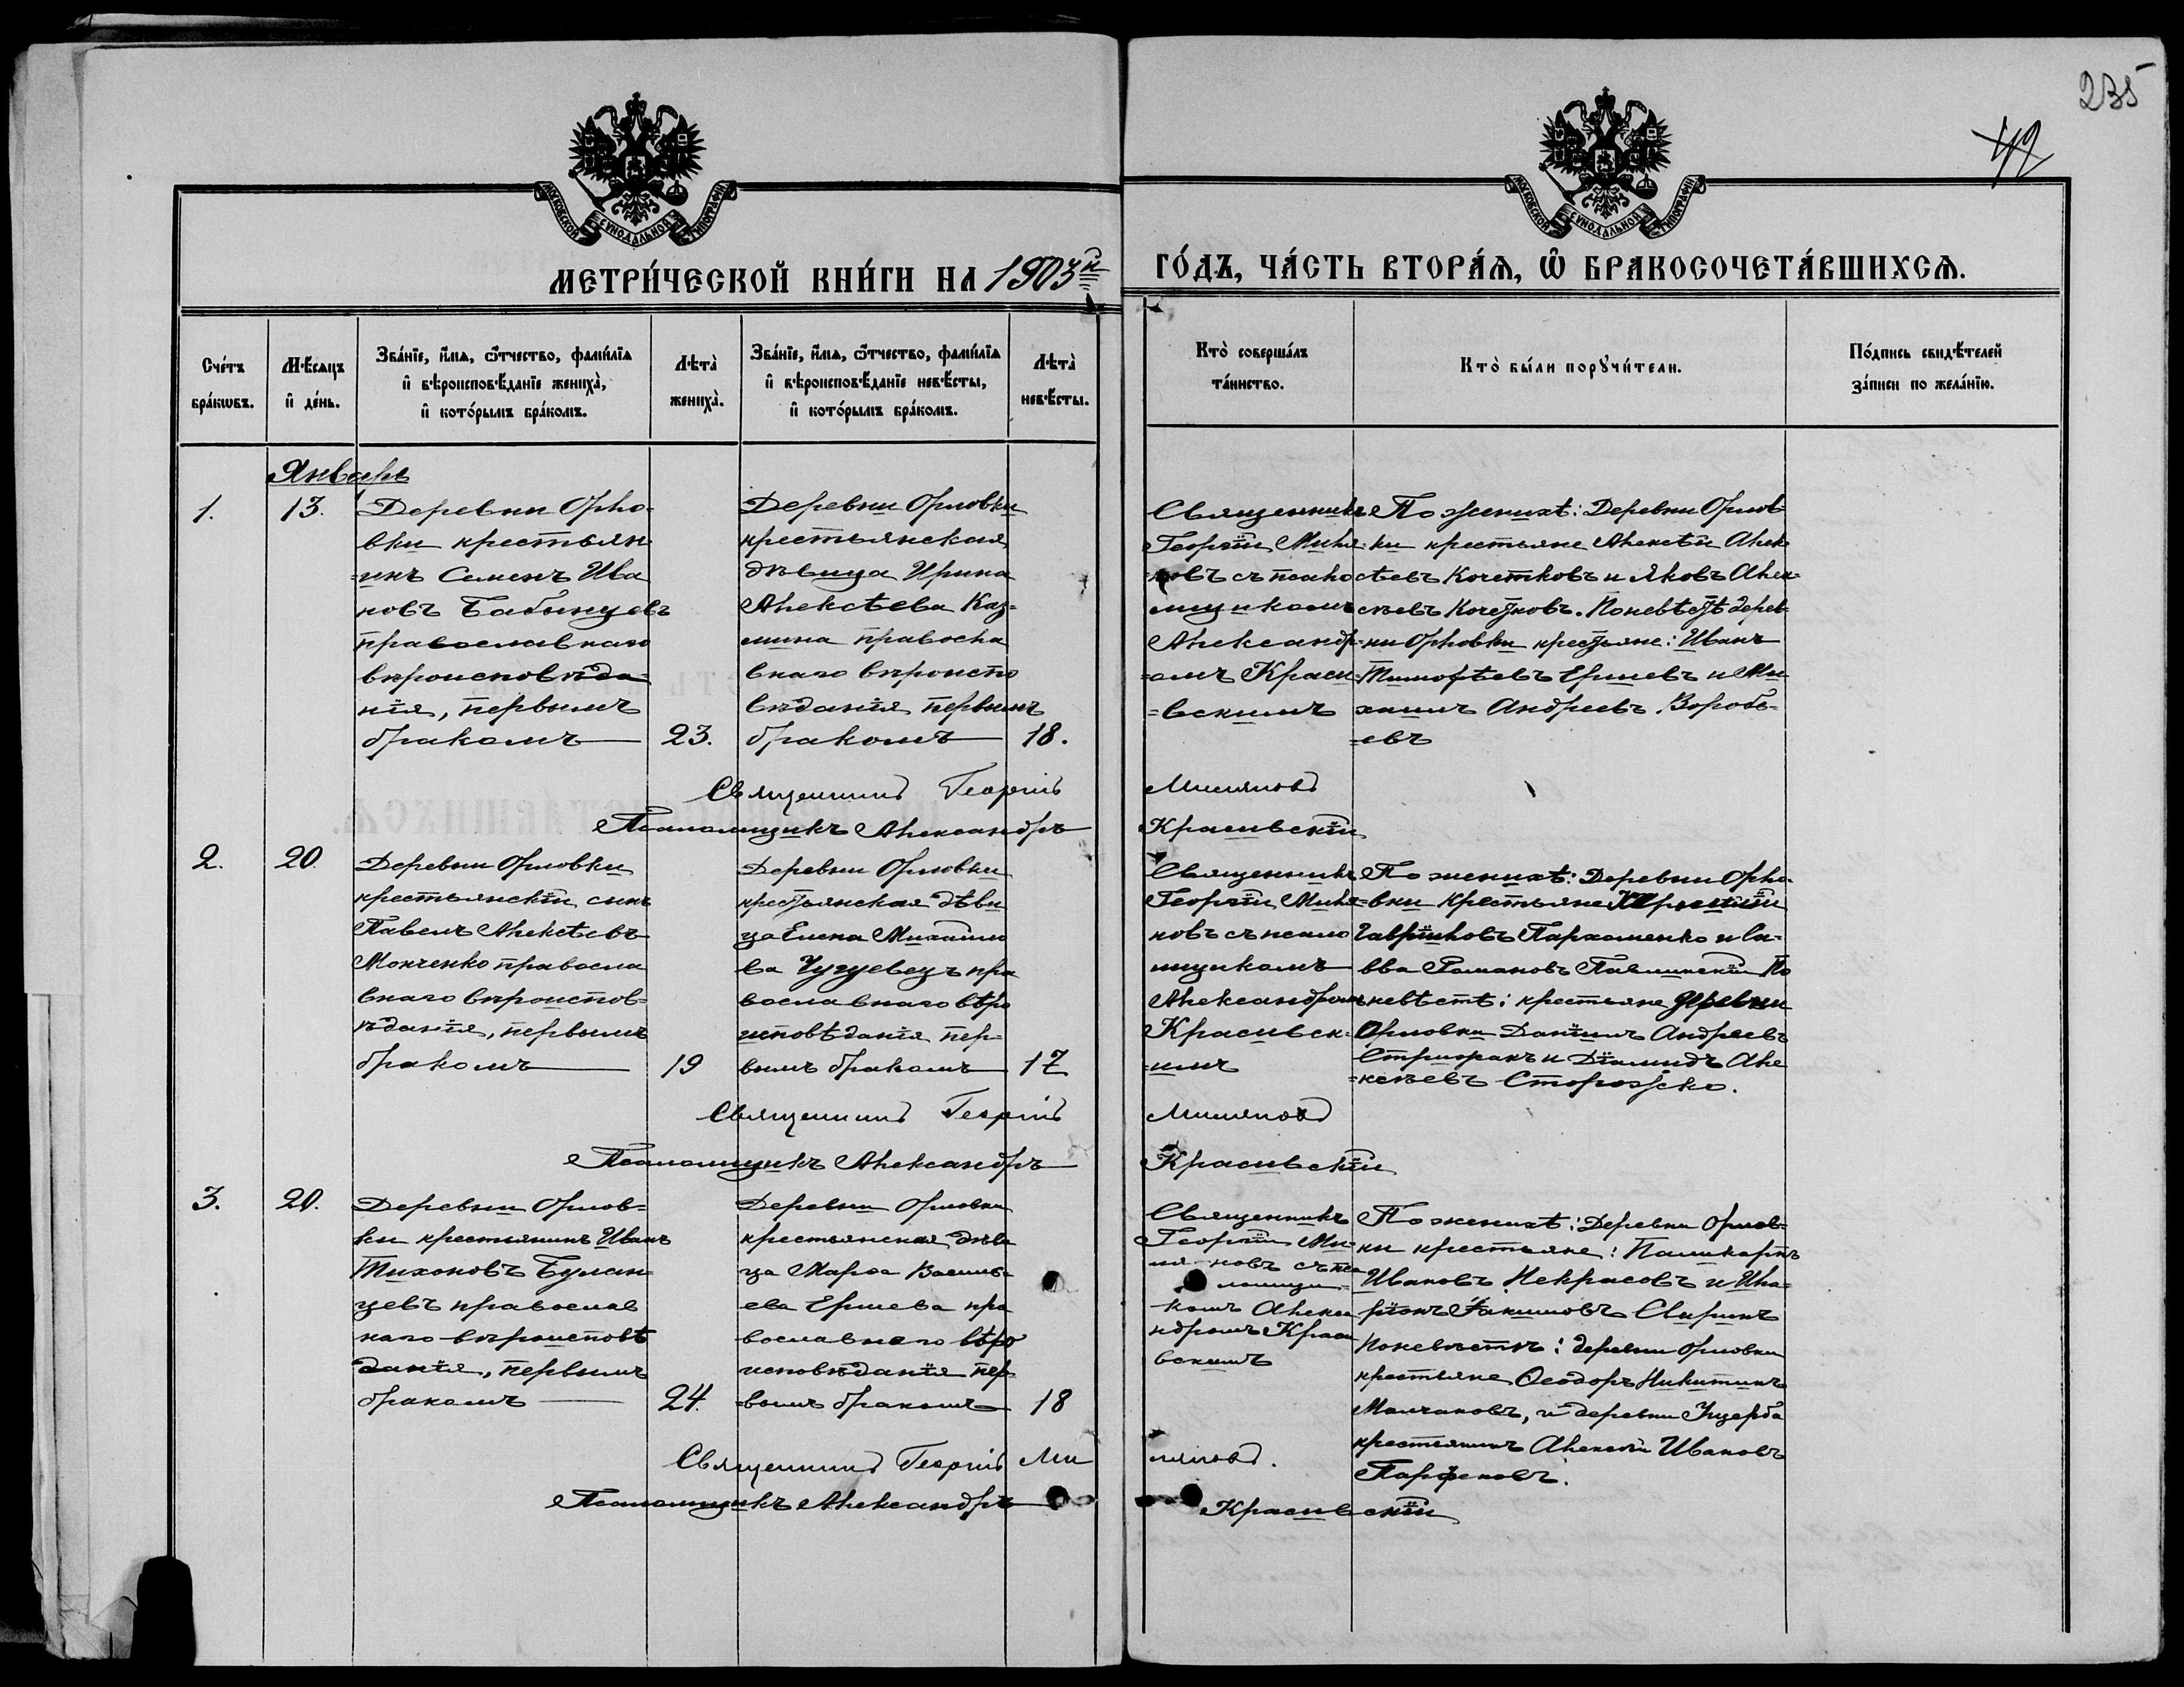 235
42
МОСКОВСКОЙ СѴНОДАЛЬНОЙ ТИПОГРАФІИ
МОСКОВСКОЙ СѴНОДАЛЬНОЙ ТИПОГРАФІИ
МЕТРИ́ЧЕСКОЙ КНИ́ГИ НА 1903й
ГО́ДЪ, ЧА́СТЬ ВТОРА́Ѧ, Ѽ БРАКОСОЧЕТА́ВШИХСѦ.
Сче́тъ
бра́кωвъ.
М҃ѣсяцъ
и҆ де́нь.
Зва́нїе, и҆́мѧ, ѻ҆́тчество, фамилїѧ
и҆ вѣроисповѣ́данїе жениха̀,
и҆ кото́рымъ бра́комъ.
Лѣта̀
жениха̀.
Зва́нїе, и҆́мѧ, ѻ҆́тчество, фамилїѧ
и҆ вѣроисповѣ́данїе невѣ́сты,
и҆ кото́рымъ бра́комъ.
Лѣта̀
невѣ́сты.
Кто̀ соверша́лъ
та́инство.
Кто̀ бы́ли порꙋчи́тели.
По́дпись свидѣ́телей
за́писи по жела́нїю.
Январь
1.
13.
Деревни Орло-
вки крестьян-
=инъ Семенъ Ива
новъ Бабынцевъ
православнаго
вѣроисповѣда-
нія, первымъ
бракомъ
23.
Деревни Орловки
крестьянская
дѣвица Ирина
Алексѣева Каз-
мина правосла
внаго вѣроиспо
вѣданія первымъ
бракомъ
18.
Священникъ
Георгій Миля-
=новъ съ псало
мщикомъ
Александр-
=омъ Краси-
=вскимъ
По женихѣ: Деревни Орлов-
ки крестьяне Алексѣй Алек-
сѣевъ Кочетковъ и Яковъ Алек-
сѣевъ Кочетковъ. По невѣстѣ дерев-
ни Орловки крестьяне: Иванъ
Тимофѣевъ Ершевъ и Ми-
хаилъ Андреевъ Воробь-
=евъ
Священникъ Георгій Миляновъ
Псаломщикъ Александръ Красивскій
2.
20.
Деревни Орловки
крестьянскій сынъ
Павелъ Алексѣевъ
Мокченко правосла
внаго вѣроиспов-
ѣданія, первымъ
бракомъ
19
Деревни Орловки
крестьянская дѣви
ца Елена Михаило
ва Чугуевецъ пра
вославнаго вѣро
исповѣданія пер-
вымъ бракомъ
17
Священникъ
Георгій Миля-
новъ съ псало
мщикомъ
Александромъ
Красивск-
=имъ
По женихѣ: Деревни Орло-
=вки крестьяне
Гавріиловъ Пархоменко и Са-
вва Романовъ Павлинскій По
невѣстѣ: крестьяне деревни
Орловки Даніилъ Андреевъ
и Діомидъ Але
=ксѣевъ Сторожко.
Священникъ Георгій Миляновъ
Псаломщикъ Александръ Красивскій
3.
20.
Деревни Орлов-
ки крестьянинъ Иванъ
Тихоновъ Булан-
цевъ православ
наго вѣроисповѣ
данія, первымъ
бракомъ
24.
Деревни Орловки
крестьянская дѣви
ца Марѳа Василь-
ева Ершева пра
вославнаго вѣро
исповѣданія пер-
=вымъ бракомъ
18
Священникъ
Георгій Ми-
ля-новъ съ пса
ломщи-
комъ Алекса
ндромъ Краси
вскимъ
По женихѣ: Деревни Орлов-
ки крестьяне: Поликарпъ
Ивановъ Некрасовъ и Ила-
ріонъ Екимовъ Свиринъ
По невѣстѣ: деревни Орловки
крестьяне Ѳеодоръ Никитинъ
Молчановъ, и деревни Ущерба
крестьянинъ Алексѣй Ивановъ
Парфеновъ.
Священникъ Георгій Миляновъ.
Псаломщикъ Александръ Красивскій